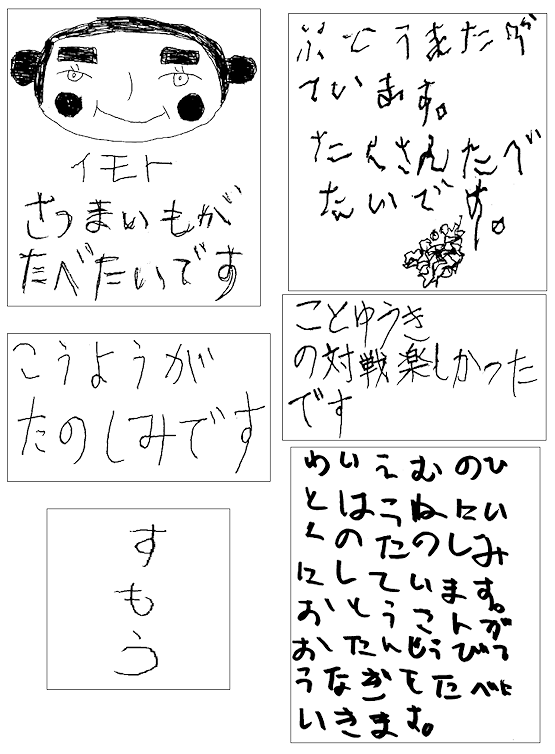 イモト
さつまいもが
たべたいです
ぶどう
ています。
たくさんたべ
たいです。
こうようが
たのしみです
ことゆうき
の対戦楽しかった
です
す
も
う
わいえむのひ
とはこねにい
くのたのしみ
にしています。
うなぎをたべに
いきます。